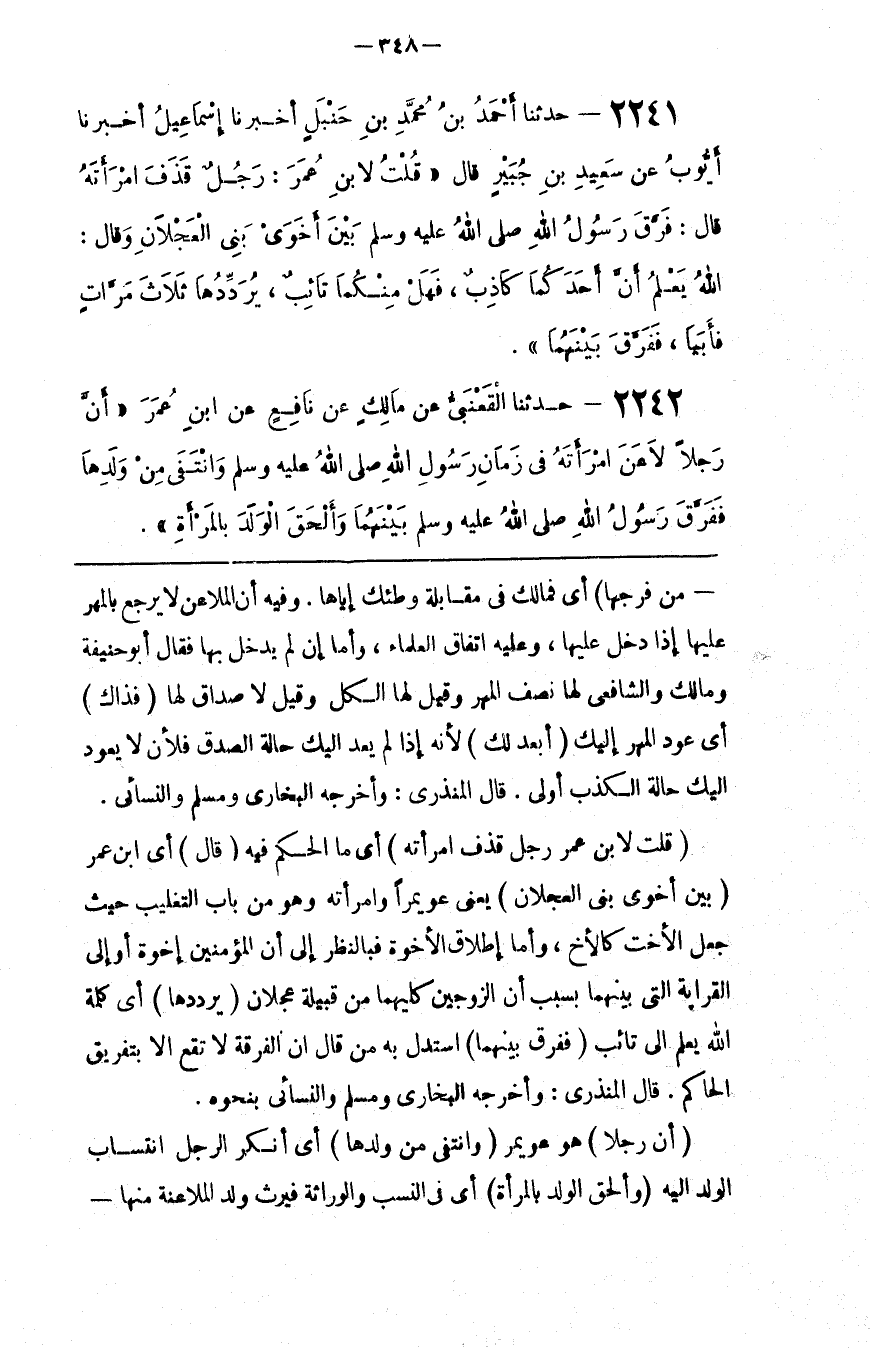 — ٣٤٨ —
٢٢٤١ — حدثنا أَحْمَدُ بنُ مُحمَّدِ بنِ حَنْبَلٍ أخـبرنا إِسْمَاعِيلُ أخـبرنا
أَيُّوبُ عن سَعِيدِ بنِ جُبَيْرٍ قال « قُلْتُ لابنِ عُمَرَ : رَجُـلٌ قَذَفَ امْرَأَتَهُ
قال : فَرَّقَ رَسُولُ اللهِ صلى اللهُ عليه وسلم بَيْنَ أَخَوَىْ بَنِى الْعَجْلَانِ وَقال :
اللهُ يَعْـلمُ أَنَّ أَحَدَكُمَا كَاذِبٌ ، فَهَلْ مِنْـكُمَا تَائِبٌ ، يُرَدِّدُهَا ثَلَاثَ مَرَّاتٍ
فأَبَيَا ، فَفَرَّقَ بَيْنَهُمَا » .
٢٢٤٢ — حـدثنا الْقَعْنَبىُّ عن مَالِكٍ عن نَافِـعٍ عن ابنِ عُمَرَ « أَنَّ
رَجلاً لَاعَنَ امْرَأَتَهُ فى زَمَانِ رَسُولِ اللهِ صلى اللهُ عليه وسلم وَانْتَـفَى مِنْ وَلَدِهَا
فَفَرَّقَ رَسُولُ اللهِ صلى اللهُ عليه وسلم بَيْنَهُمَا وَأَلْحَقَ الْوَلَدَ بالمَرْأَةِ » .
— من فرجها) أى فمالك فى مقـابلة وطئك إياها . وفيه أن الملاعن لا يرجع بالمهر
عليها إذا دخل عليها ، وعليه اتفاق العلماء ، وأما إن لم يدخل بها فقال أبو حنيفة
ومالك والشافعى لها نصف المهر وقيل لها الـكل وقيل لا صداق لها ( فذاك )
أى عود المهر إليك ( أبعد لك ) لأنه إذا لم يعد اليك حالة الصدق فلأن لا يعود
اليك حالة الـكذب أولى . قال المنذرى : وأخرجه البخارى ومسلم والنسائى .
( قلت لابن عمر رجل قذف امرأته ) أى ما الحـكم فيه ( قال ) أى ابن عمر
( بين أخوى بنى العجلان ) يعنى عويمراً وامرأته وهو من باب التغليب حيث
جعل الأخت كالأخ ، وأما إطلاق الأخوة فبالنظر إلى أن المؤمنين إخوة أو إلى
القرابة التى بينهما بسبب أن الزوجين كليهما من قبيلة عجلان ( يرددها ) أى كلمة
الله يعلم الى تائب ( ففرق بينهما) استدل به من قال ان الفرقة لا تقع الا بتفريق
الحاكم . قال المنذرى : وأخرجه البخارى ومسلم والنسائى بنحوه .
( أن رجلا ) هو عويمر ( وانتفى من ولدها ) أى أنـكر الرجل انتسـاب
الولد اليه (وألحق الولد بالمرأة) أى فى النسب والوراثة فيرث ولد الملاعنة منها —